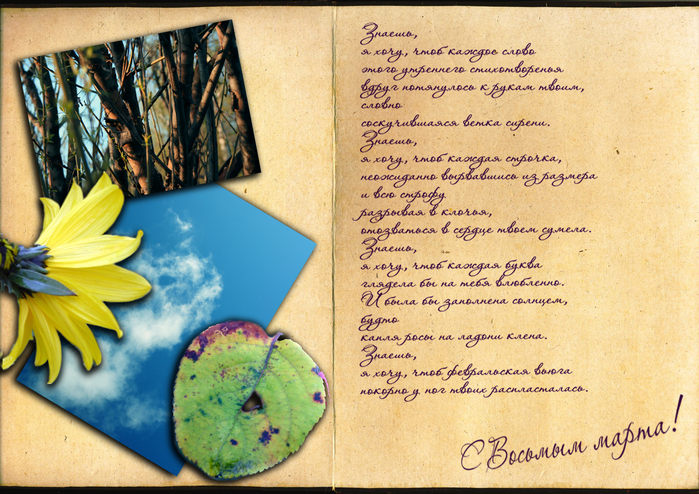 Знаешь,
я хочу, чтоб каждое слово
этого утреннего стихотворенья
вдруг потянулось к рукам твоим,
словно
соскучившаяся ветка сирени.
Знаешь,
я хочу, чтоб каждая строчка,
неожиданно вырвавшись из размера
и всю строфу
разрывая в клочья,
отозваться в сердце твоем сумела.
Знаешь,
я хочу, чтоб каждая буква
глядела бы на тебя влюбленно.
И была бы заполнена солнцем,
будто
капля росы на ладони клена.
Знаешь,
я хочу, чтоб февральская вьюга
покорно у ног твоих распласталась.
С Восьмым марта!